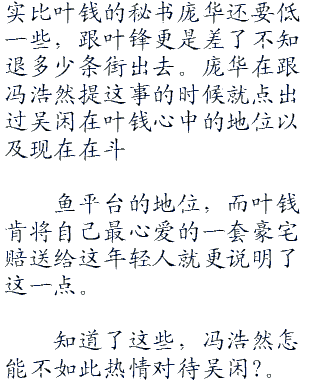 实比叶钱的秘书庞华还要低
一些，跟叶锋更是差了不知
退多少条街出去。庞华在跟
冯浩然提这事的时候就点出
过吴闲在叶钱心中的地位以
及现在在斗
鱼平台的地位，而叶钱
肯将自己最心爱的一套豪宅
赔送给这年轻人就更说明了
这一点。
知道了这些，冯浩然怎
能不如此热情对待吴闲?。